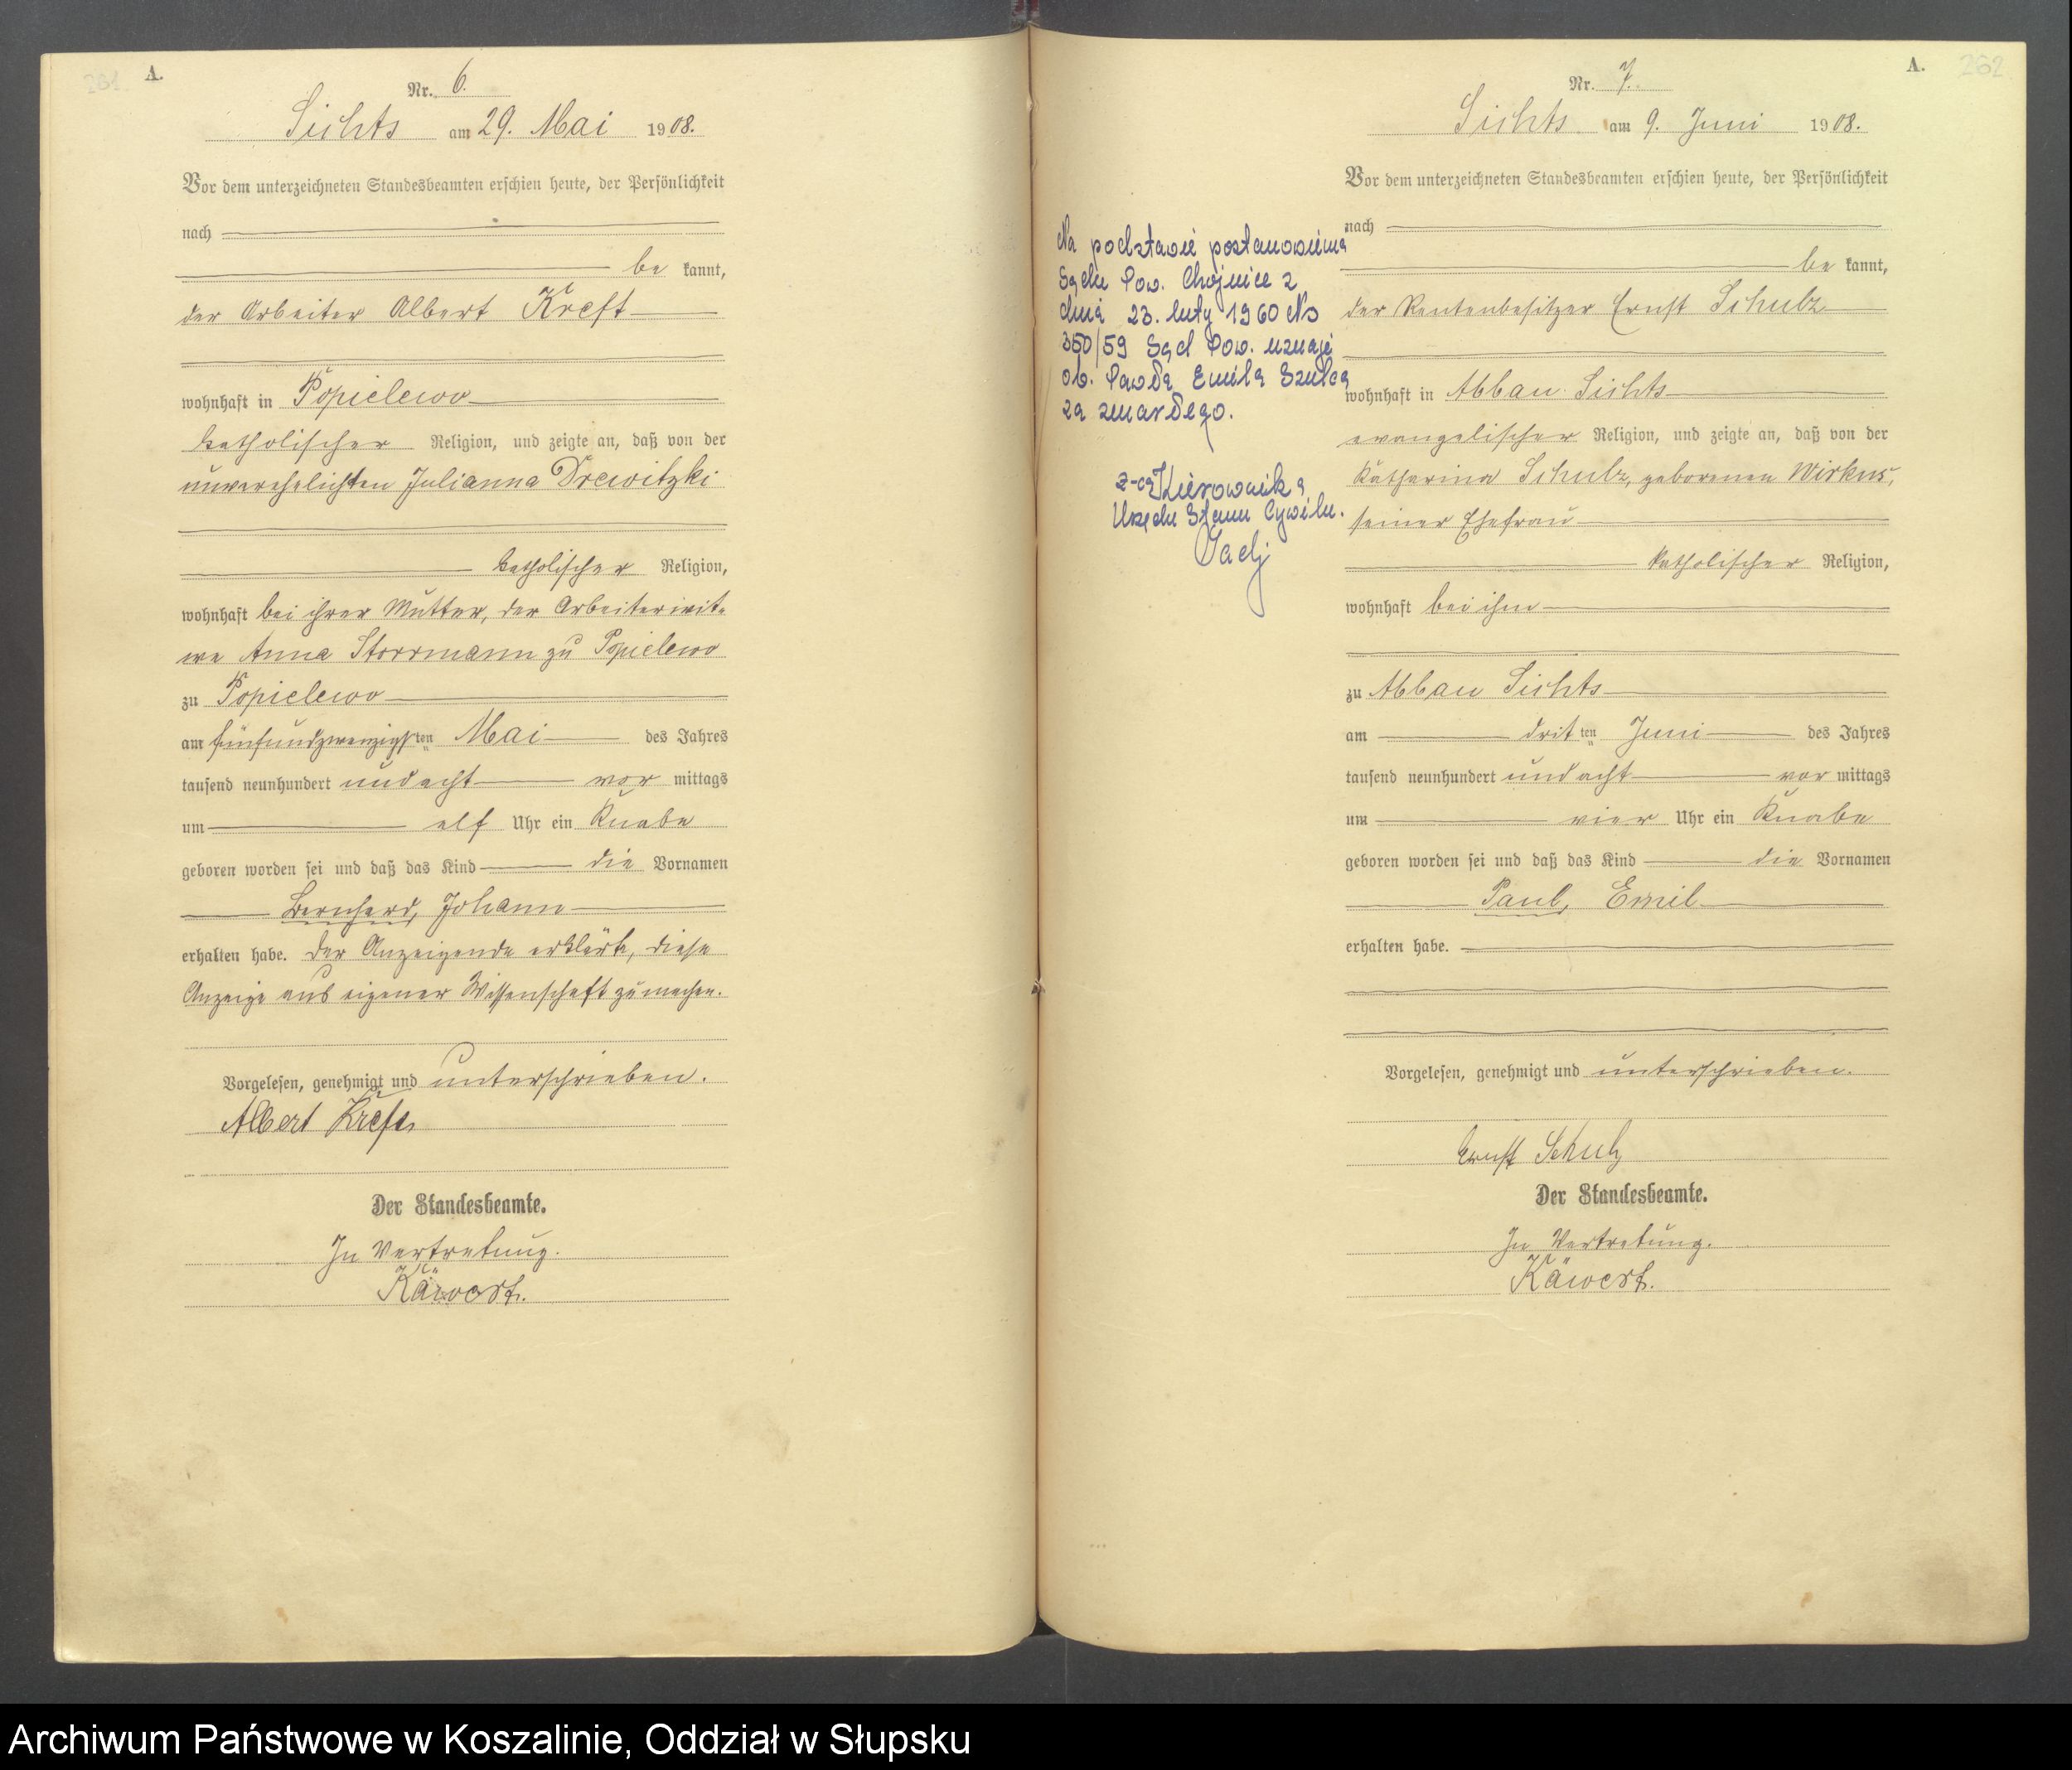 261
A.
Nr. 6.
Sichts am 29. Mai 1908.
Vor dem unterzeichneten Standesbeamten erschien heute, der Persönlichkeit
nach
be kannt,
der Arbeiter Albert Kreft
wohnhaft in Popielewo
katholischer Religion, und zeigte an, daß von der
unverehelichten Julianna Drewitzki
katholischer Religion,
wohnhaft bei ihrer Mutter, der Arbeiterwit-
we Anna Storrmann zu Popielewo
zu Popielewo
am fünfundzwanzigsten Mai des Jahres
tausend neunhundert undacht vor mittags
um elf Uhr ein Knabe
geboren worden sei und daß das Kind die Vornamen
Bernhard, Johann
erhalten habe. Der Anzeigende erklärte, diese
Anzeige aus eigener Wissenschaft zu machen.
Vorgelesen, genehmigt und unterschrieben.
Albert Kreft
Der Standesbeamte.
In Vertretung.
Käwert.
A. 262
Nr. 7.
Sichts am 9. Juni 1908.
Vor dem unterzeichneten Standesbeamten erschien heute, der Persönlichkeit
nach
be kannt,
der Rentenbesitzer Ernst Schulz
wohnhaft in Abbau Sichts
evangelischer Religion, und zeigte an, daß von der
Katharina Schulz, geborenen Wirkus,
seiner Ehefrau
katholischer Religion,
wohnhaft bei ihm
zu Abbau Sichts
am dritten Juni des Jahres
tausend neunhundert undacht vor mittags
um vier Uhr ein Knabe
geboren worden sei und daß das Kind die Vornamen
Paul, Emil
erhalten habe.
Vorgelesen, genehmigt und unterschrieben.
Ernst Schulz
Der Standesbeamte.
In Vertretung.
Käwert.
Na podstawie postanowienia
Sądu Pow. Chojnice z
dnia 23. luty 1960 Ns
350/59 Sąd Pow. uznaje
ob. Pawła Emila Szulca
za zmarłego.
z-ca Kierownika
Urzędu Stanu Cywiln.
Archiwum Państwowe w Koszalinie, Oddział w Słupsku